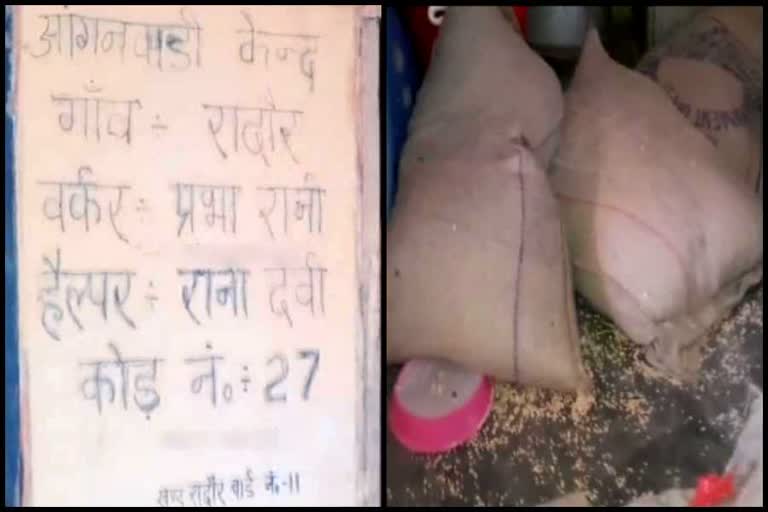 आंगनवाडी केन्द
गाँव ÷ रादौर
वर्कर ÷ प्रभा रानी
हैल्पर ÷ राना दवी
कोड़ नं.÷ 27
रादौर वार्ड नं.-11